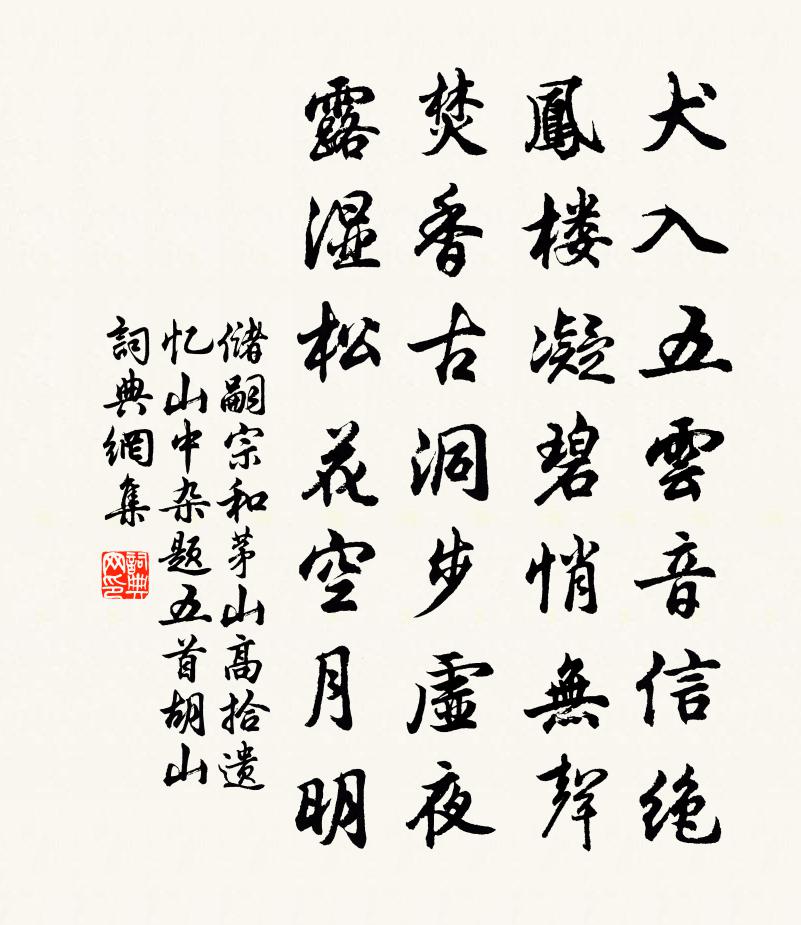 犬入五雲音信绝
鳳楼凝碧悄無聲
焚香古洞步虚夜
露湿松花空月明
储嗣宗和茅山高拾遗
忆山中杂题五首胡山
詞典網集
詞典网印